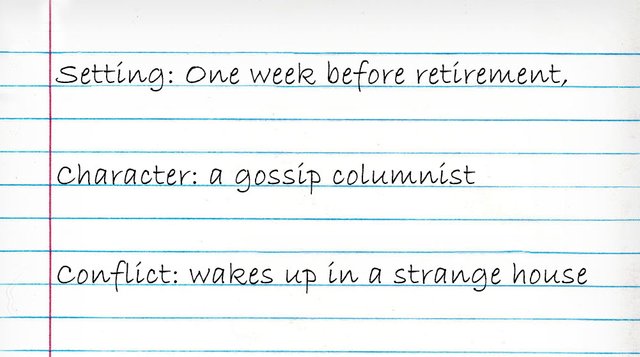 Setting: One week before retirement,
Character: a gossip columnist
Conflict: wakes up in a strange house